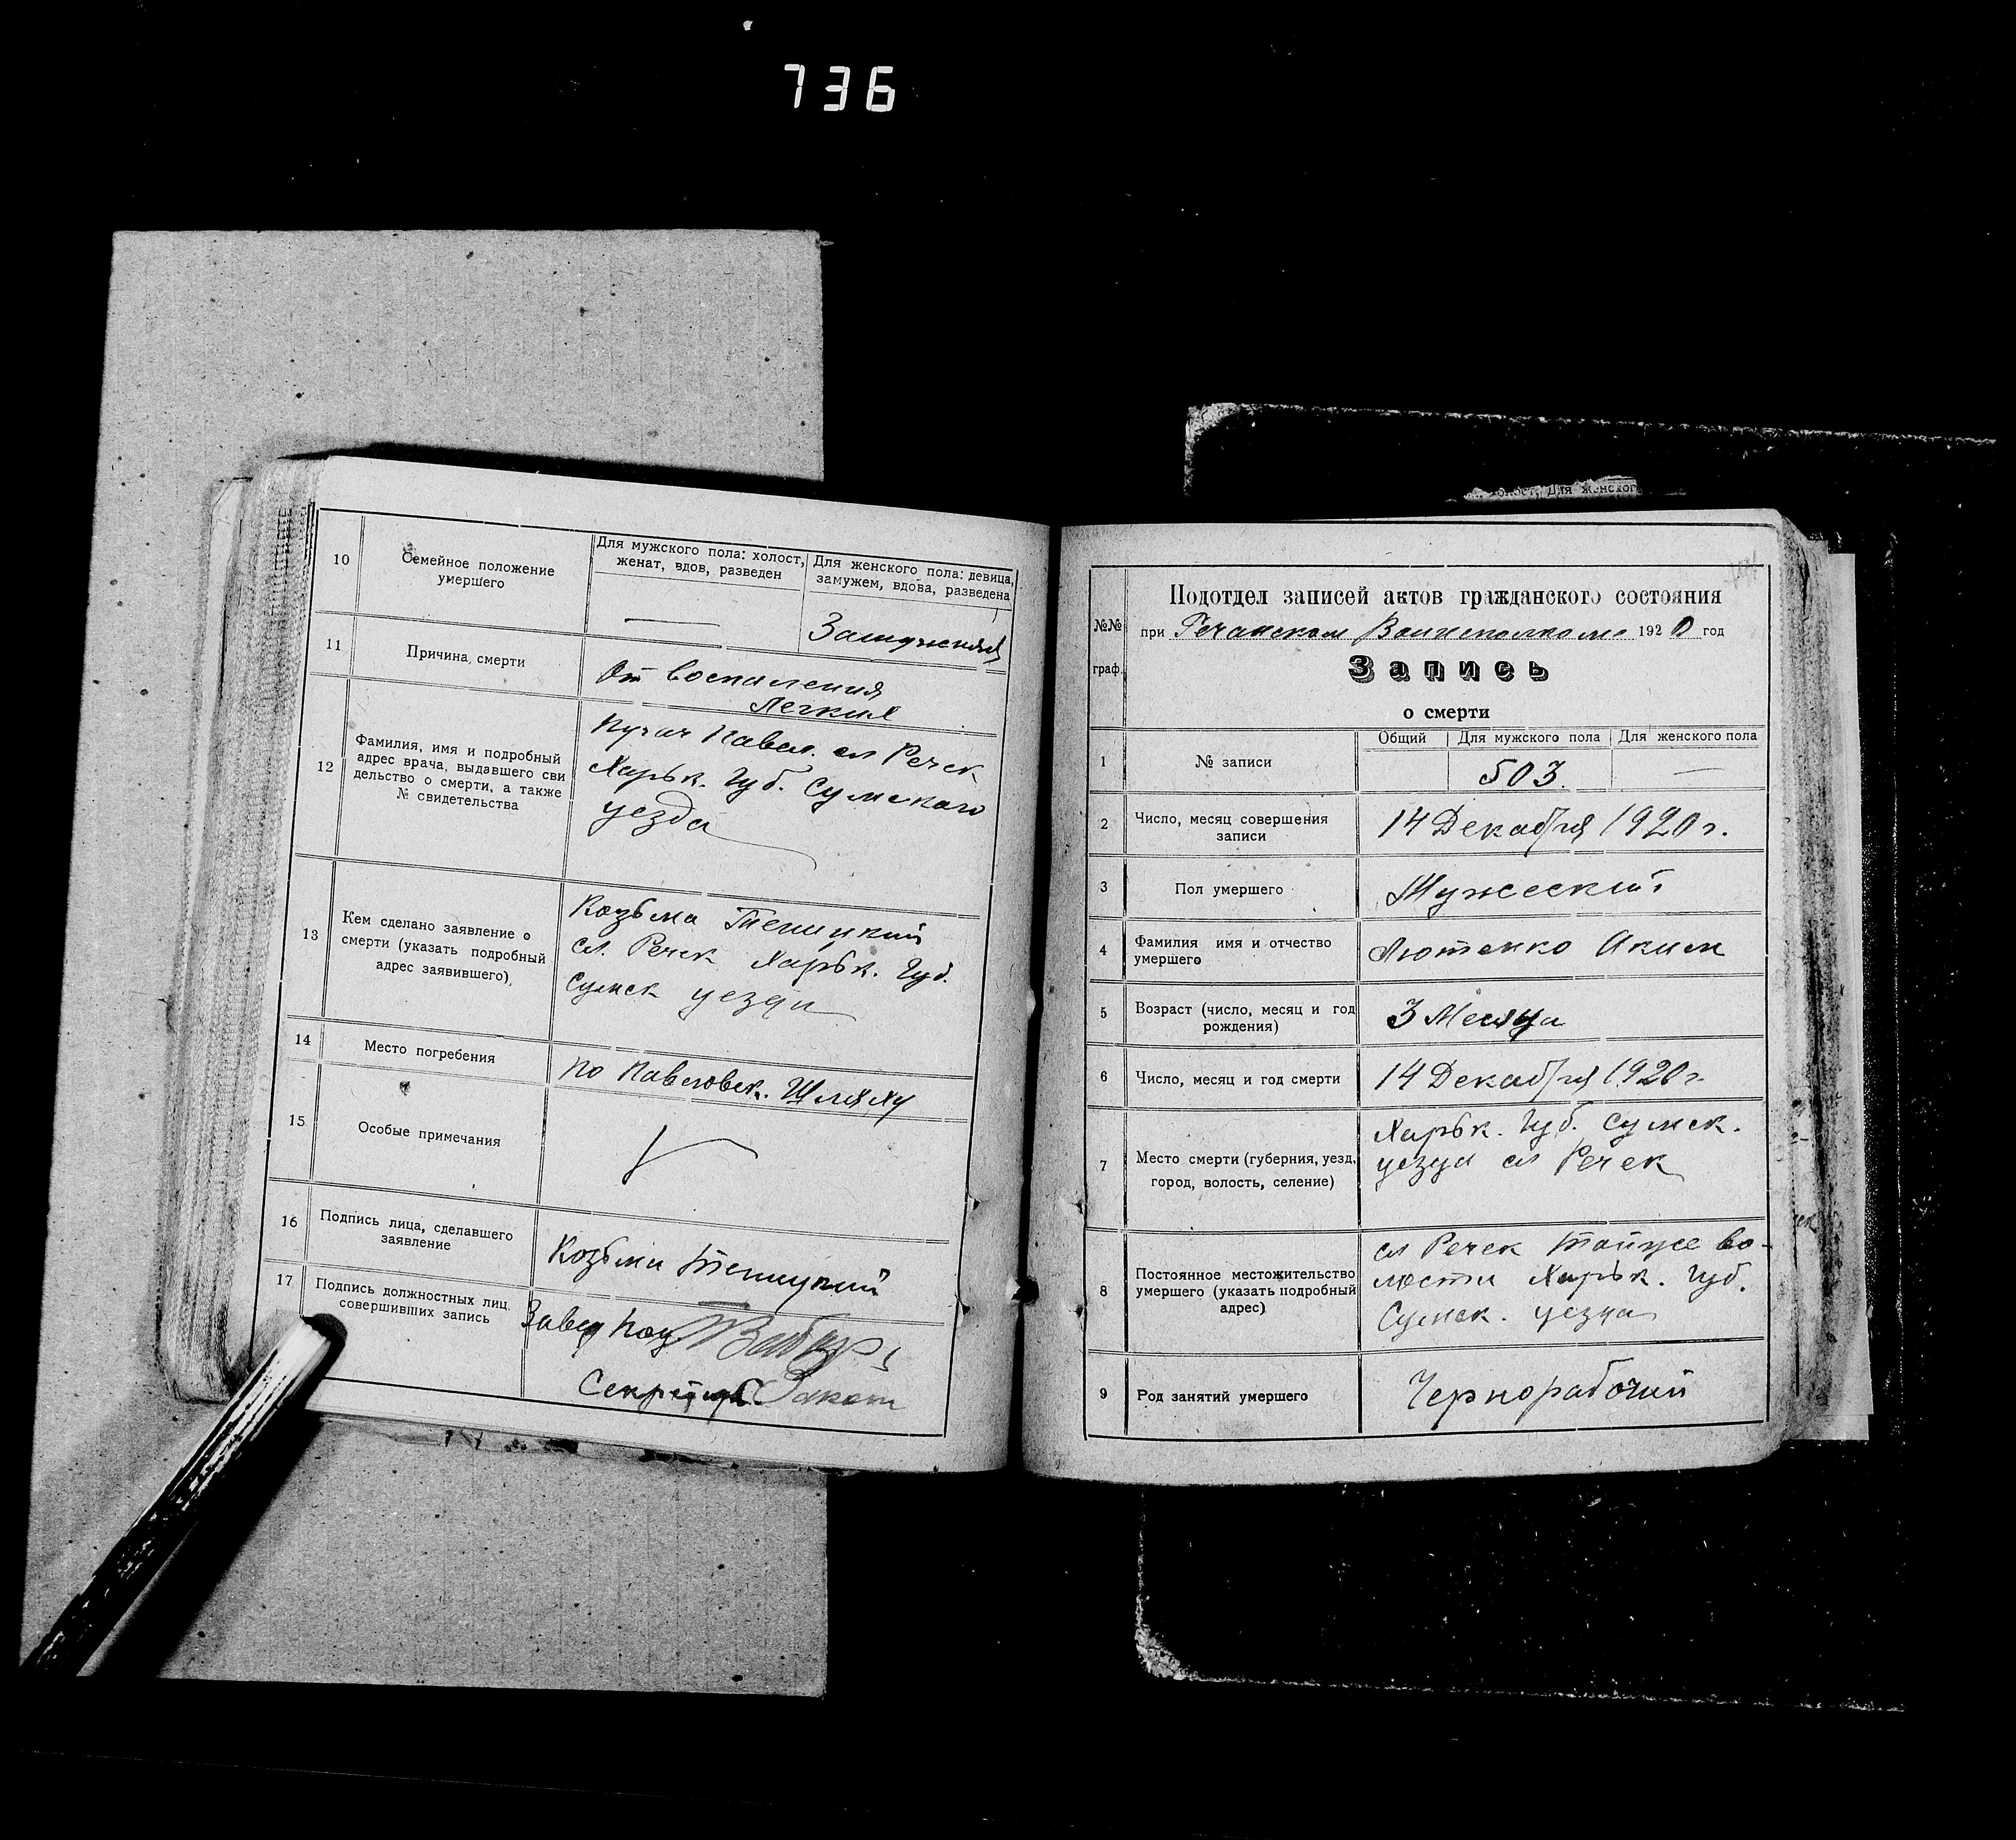 736
10
Семейное положение
умершего
Для мужского пола: холост,
женат, вдов, разведен
Для женского пола: девица,
замужем, вдова, разведена
—
Замужняя
11
Причина смерти
От воспаления
Легких
12
Фамилия, имя и подробный
адрес врача, выдавшего сви
дельство о смерти, а также
№ свидетельства
Павел. сл Речек
Харьк. Губ. Сумского
уезда
13
Кем сделано заявление о
смерти (указать подробный
адрес заявившего).
Козьма
сл. Речек Харьк. Губ.
Сумск уезда
14
Место погребения
по Павловск. Шляху
15
Особые примечания
16
Подпись лица, сделавшего
заявление
Козьма
17
Подпись должностных лиц
совершивших запись
Завед Под.
Секретарь
Для женского
№№
граф.
Подотдел записей актов гражданского состояния
при Речанском Волисполкоме 1920 год
Запись
о смерти
1
№ записи
Общий
Для мужского пола
Для женского пола
503.
—
2
Число, месяц совершения
записи
14 Декабря 1920 г.
3
Пол умершего
Мужеский
4
Фамилия имя и отчество
умершего
Лютенко Аким
5
Возраст (число, месяц и год
рождения)
3 Месяца
6
Число, месяц и год смерти
14 Декабря 1920 г.
7
Место смерти (губерния, уезд,
город, волость, селение)
Харьк. Губ. Сумск.
уезда сл Речек
8
Постоянное местожительство
умершего (указать подробный
адрес)
сл Речек тойже во-
лости Харьк. Губ.
Сумск. уезда
9
Род занятий умершего
Чернорабочий